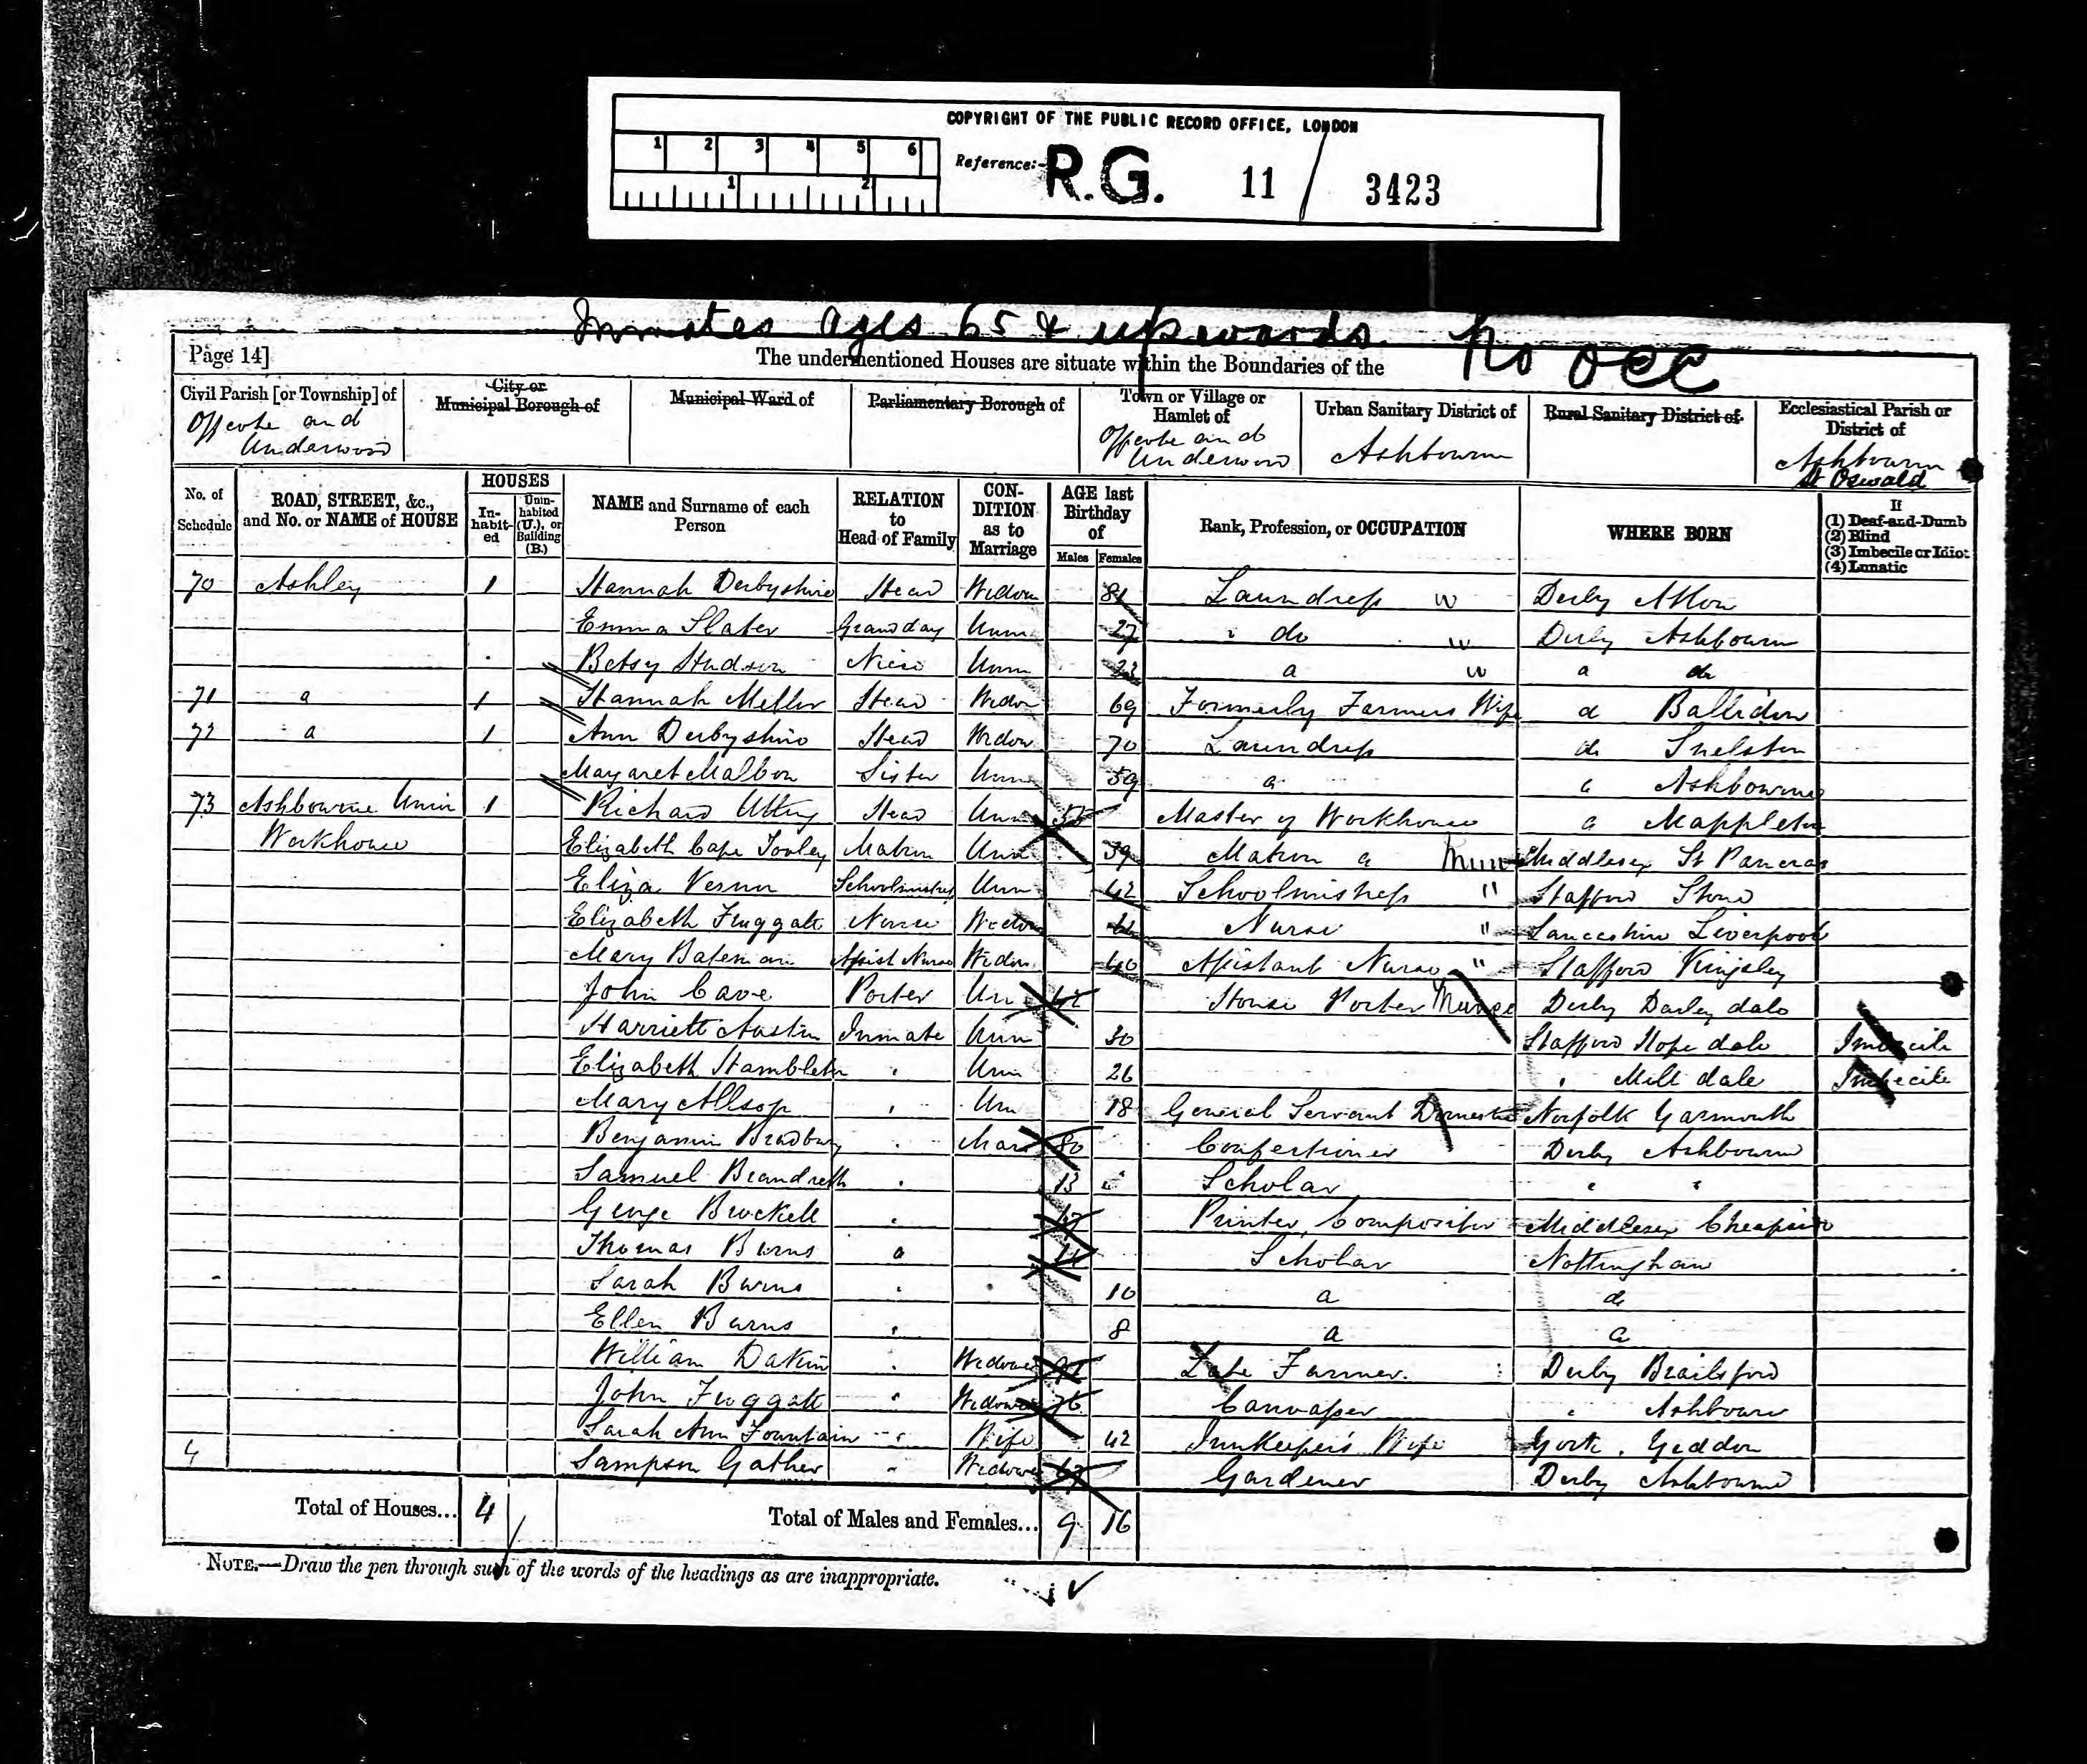 COPYRIGHT OF THE PUBLIC RECORD OFFICE, LONDON
1 2 3 4 5 6
1 2
Reference:- R.G. 11 / 3423
Inmates ages 65 & upwards. No occ
Page 14]
The undermentioned Houses are situate within the Boundaries of the
Civil Parish [or Township] of
Offcote and
Underwood
City or
Municipal Borough of
Municipal Ward of
Parliamentary Borough of
Town or Village or
Hamlet of
Offcote and
Underwood
Urban Sanitary District of
Ashbourn
Rural Sanitary District of
Ecclesiastical Parish or
District of
Ashbourn
St Oswald
No. of
Schedule
ROAD, STREET, &c.,
and No. or NAME of HOUSE
HOUSES
In-
habit-
ed
Unin-
habited
(U.), or
Building
(B.)
NAME and Surname of each
Person
RELATION
to
Head of Family
CON-
DITION
as to
Marriage
AGE last
Birthday
of
Males Females
Rank, Profession, or OCCUPATION
WHERE BORN
If
(1) Deaf-and-Dumb
(2) Blind
(3) Imbecile or Idiot
(4) Lunatic
70 Ashley 1 Hannah Derbyshire Head Widow 81 Laundress W Derby
Emma Slater Granddau Unm 27 do W Derby Ashbourn
Betsy Hudson Niece Unm 23 W do
71 1 Hannah Meller Head Widow 69 Formerly Farmers Wife Ballidon
72 1 Ann Derbyshire Head Widow 70 Laundress do Snelston
Margaret Malbon Sister Unm 59 Ashbourne
73 Ashbourne Union 1 Richard Head Unm Master of Workhouse Mappleton
Workhouse Elizabeth Cape Matron Unm 39 Matron Middlesex St Pancras
Eliza Vernon Schoolmistress Unm 42 Schoolmistress " Stafford Stone
Elizabeth Fruggatt Nurse Widow Nurse " Lancashire Liverpool
Mary Bateman Assist Nurse Widow 40 Assistant Nurse " Stafford Kingsley
John Cave Porter Un House Porter Derby Darley dale
Harriett Austin Inmate Unm 30 Stafford Hope dale Imbecile
Elizabeth Hambleton Unm 26 Mill dale Imbecile
Mary Allsop Un 18 General Servant Domestic Norfolk Yarmouth
Benjamin Bradbury Mar 80 Confectioner Derby Ashbourn
Samuel Brandreth 13 Scholar
George Brockell Printer Compositor Middlesex Cheapside
Thomas Burns 11 Scholar Nottingham
Sarah Burns 10 do
Ellen Burns 8
William Dakin Widower Late Farmer. Derby Brailsford
John Fruggatt Widower 76 Canvasser Ashbourn
Sarah Ann Fountain Wife 42 Innkeeper's Wife York
4 Sampson Gather Widower Gardener Derby Ashbourne
Total of Houses... 4 Total of Males and Females... 9 16
NOTE.—Draw the pen through such of the words of the headings as are inappropriate.